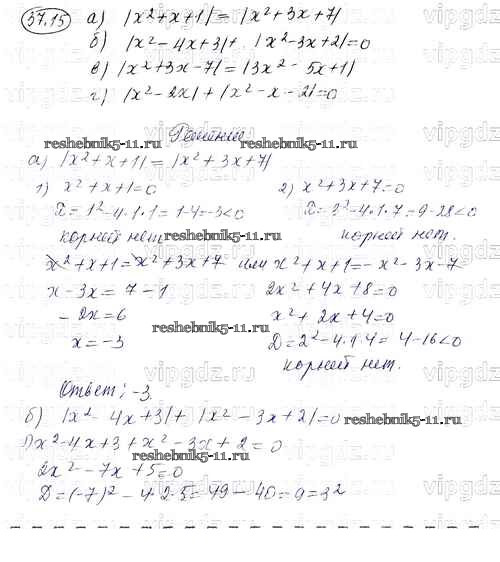 37.15 а) |x²+x+1| = |x²+3x+7|
б) |x²-4x+3|+ |x²-3x+2|=0
в) |x²+3x-7| = |3x²-5x+1|
г) |x²-2x|+|x²-x-2|=0
Решение
reshebnik5-11.ru
а) |x²+x+1| = |x²+3x+7|
1) x²+x+1=0 2) x²+3x+7=0
Д=1²-4·1·1=1-4=-3<0 Д=3²-4·1·7=9-28<0
корней нет reshebnik5-11.ru корней нет.
x²+x+1=x²+3x+7 или x²+x+1=-x²-3x-7
x-3x=7-1 2x²+4x+8=0
-2x=6 x²+2x+4=0
reshebnik5-11.ru
x=-3 D=2²-4·1·4=4-16<0
корней нет.
Ответ: -3.
б) |x²-4x+3|+|x²-3x+2|=0 reshebnik5-11.ru
1) x²-4x+3+x²-3x+2=0
reshebnik5-11.ru
2x²-7x+5=0
D=(-7)²-4·2·5=49-40=9=3²
vipgdz.ru